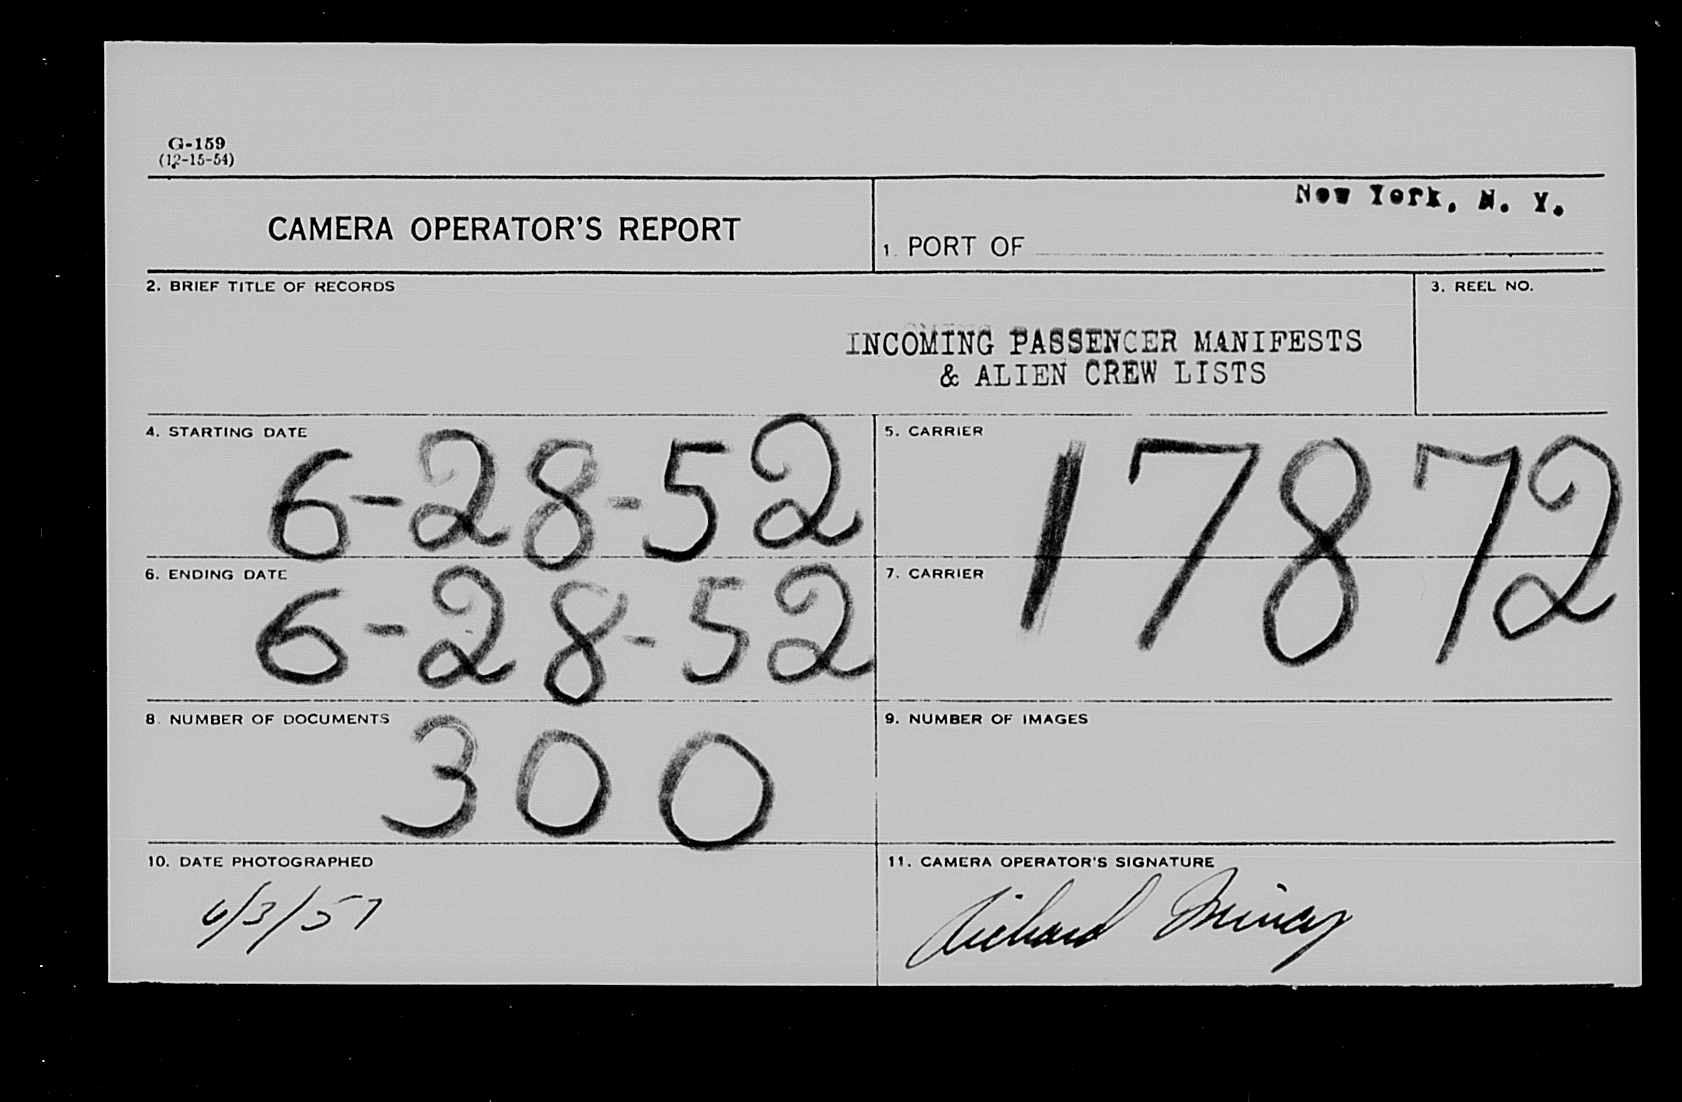 G-159
(12-15-54)
CAMERA OPERATOR'S REPORT
1. PORT OF New York, N. Y.
2. BRIEF TITLE OF RECORDS
INCOMING PASSENGER MANIFESTS
& ALIEN CREW LISTS
3. REEL NO.
4. STARTING DATE 6-28-52
5. CARRIER 17872
6. ENDING DATE 6-28-52
7. CARRIER
8. NUMBER OF DOCUMENTS 300
9. NUMBER OF IMAGES
10. DATE PHOTOGRAPHED
6/3/57
11. CAMERA OPERATOR'S SIGNATURE
Richard